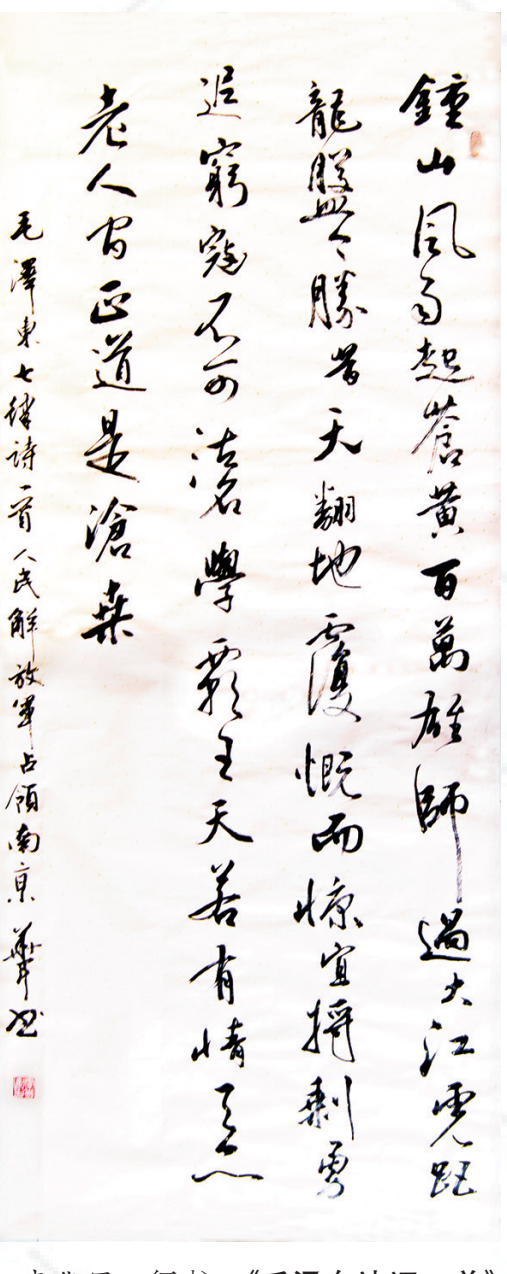 鍾山風雨起蒼黃百萬雄師過大江虎踞
龍盤今勝昔天翻地覆慨而慷宜將剩勇
追窮寇不可沽名學霸王天若有情天亦
老人間正道是滄桑
毛澤東七律詩一首人民解放軍占領南京